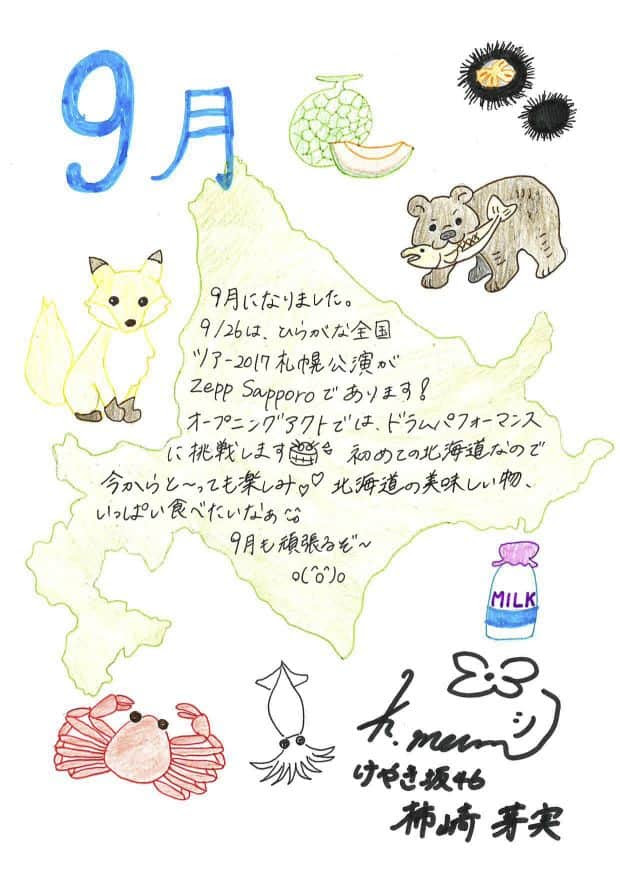 9月
9月になりました。
9/26は、ひらがな全国
ツアー2017札幌公演が
Zepp Sapporoであります!
オープニングアクトでは、ドラムパフォーマンス
に挑戦します 初めての北海道なので
今からと〜っても楽しみ♡♡ 北海道の美味しい物、
いっぱい食べたいなぁ
9月も頑張るぞ〜
o(^o^)o
MILK
k.memi
けやき坂46
柿崎 芽実